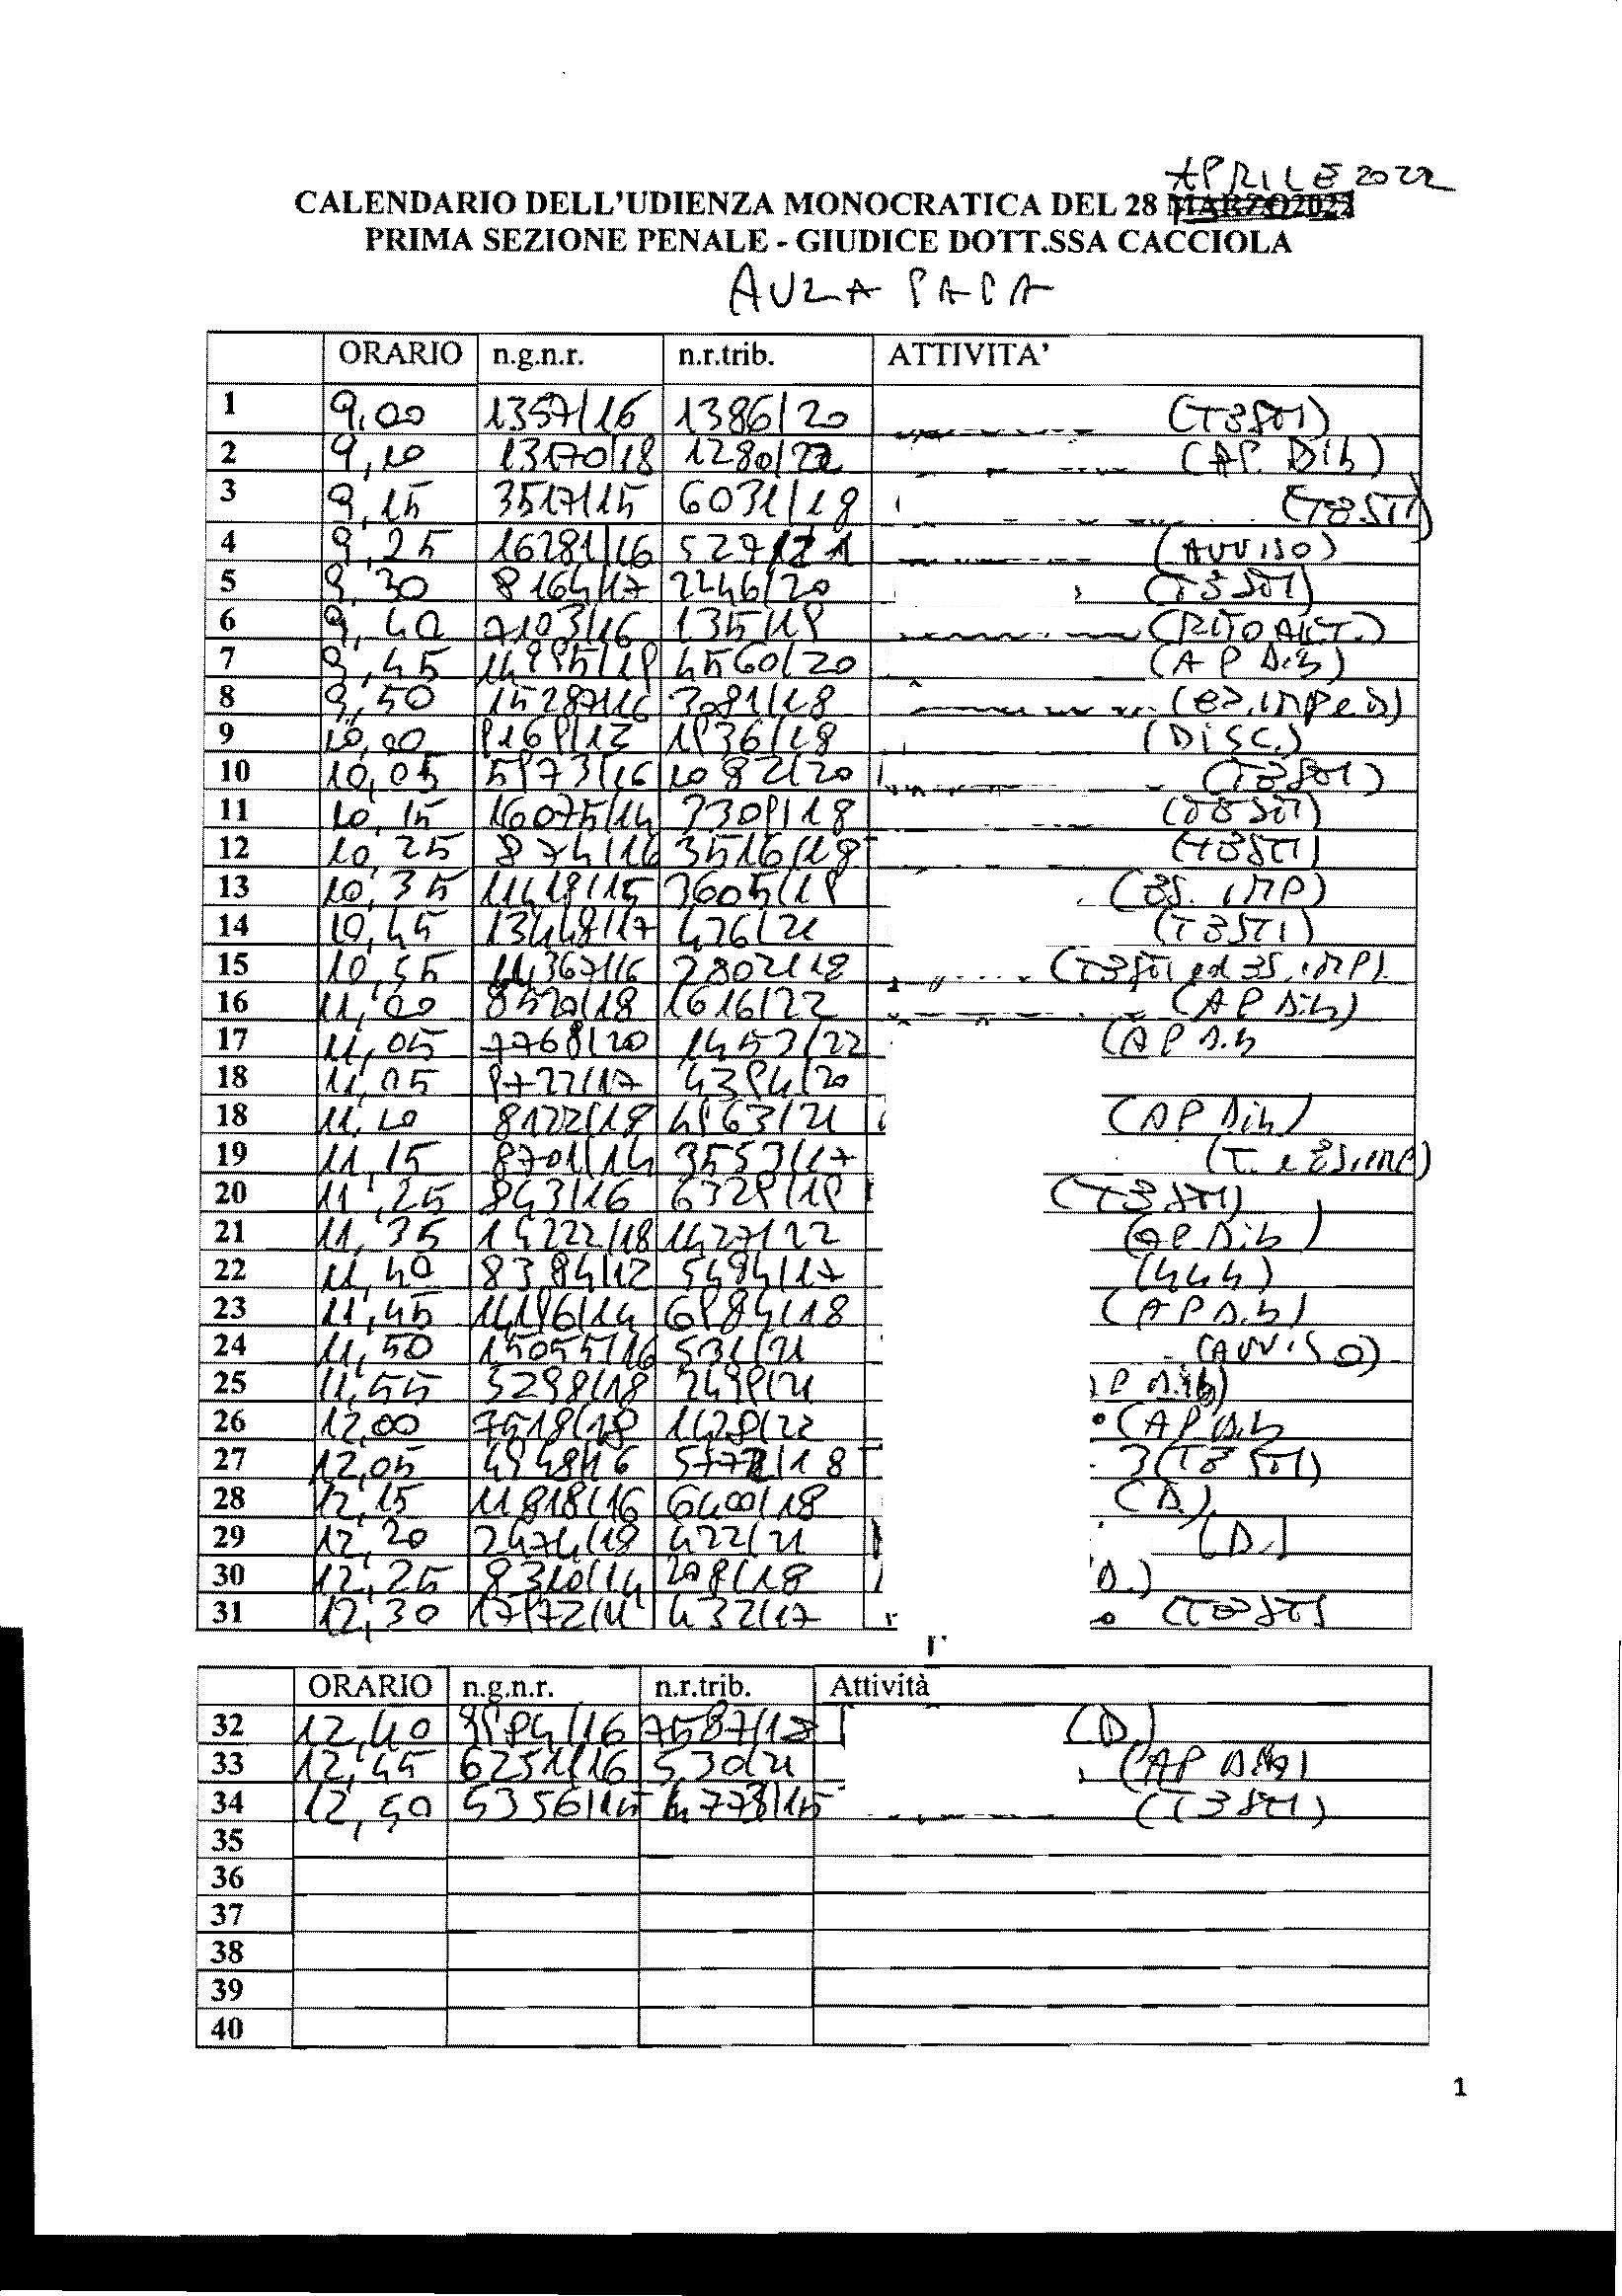 APRILE 2022
CALENDARIO DELL'UDIENZA MONOCRATICA DEL 28 MARZO 2022
PRIMA SEZIONE PENALE - GIUDICE DOTT.SSA CACCIOLA
AULA PAPA
ORARIO n.g.n.r. n.r.trib. ATTIVITA'
1 9,00 1357/16 1386/20 (TESTI)
2 9,10 13170/18 1280/22 (AP. Dib)
3 9,15 3517/15 6031/18 (TESTI)
4 9,25 16281/16 527/21 (AVVISO)
5 9,30 8164/17 2446/20 (TESTI)
6 9,40 7103/16 135/19
7 9,45 4560/20 (AP Dib)
8 9,50 15287/16 3081/18
9 10,00 1936/18 (DISC.)
10 10,05 5973/16 1082/20 (TESTI)
11 10,15 16075/14 3309/18 (TESTI)
12 10,25 874/16 3516/18 (TESTI)
13 10,35 11418/15 3605/19 (ES. IMP)
14 10,45 13448/17 476/21 (TESTI)
15 10,55 14367/16 2802/18 (TESTI ed ES. IMP).
16 11,00 8520/18 1616/22 (AP Dib)
17 11,05 7768/20 1453/22 (AP Dib
18 11,05 9722/17 4394/20
18 11,10 8122/18 4963/21 (AP Dib)
19 11,15 8701/14 3553/17 (T. e ES. IMP)
20 11,25 843/16 6329/19 (TESTI)
21 11,35 14222/18 1427/22 (AP Dib)
22 11,40 8384/12 5484/17 (444)
23 11,45 14196/14 6984/18 (AP Dib)
24 11,50 15055/16 531/21 (AVVISO)
25 11,55 3298/18 2499/21 P Dib)
26 12,00 7518/18 1428/22 (AP Dib
27 12,05 4948/16 /18 (TESTI)
28 12,15 11818/16 6400/18 (D.)
29 12,20 2474/18 422/21 (D.)
30 12,25 8310/14 209/18 D.)
31 12,30 432/17 (TESTI
ORARIO n.g.n.r. n.r.trib. Attività
32 12,40 (D.)
33 12,45 6251/16 530/21 (AP Dib)
34 12,50 5356/15 4773/15 (TESTI)
35
36
37
38
39
40
1